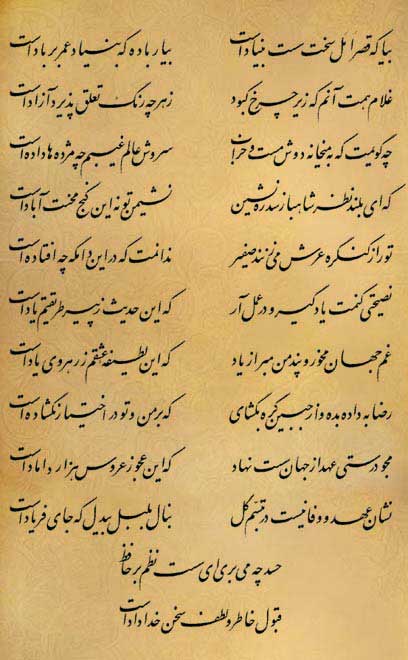 بیا که قصر امل سخت سست بنیادست بیار باده که بنیاد عمر بر بادست
غلام همت آنم که زیر چرخ کبود ز هر چه رنگ تعلق پذیرد آزادست
چه گویمت که به میخانه دوش مست و خراب سروش عالم غیبم چه مژده‌ها دادست
که ای بلند نظر شاهباز سدره نشین نشیمن تو نه این کنج محنت آبادست
تو را ز کنگره عرش می‌زنند صفیر ندانمت که در این دامگه چه افتادست
نصیحتی کنمت یاد گیر و در عمل آر که این حدیث ز پیر طریقتم یادست
غم جهان مخور و پند من مبر از یاد که این لطیفه عشقم ز رهروی یادست
رضا به داده بده وز جبین گره بگشای که بر من و تو در اختیار نگشادست
مجو درستی عهد از جهان سست نهاد که این عجوز عروس هزار دامادست
نشان عهد و وفا نیست در تبسم گل بنال بلبل بیدل که جای فریادست
حسد چه می‌بری ای سست نظم بر حافظ
قبول خاطر و لطف سخن خدادادست